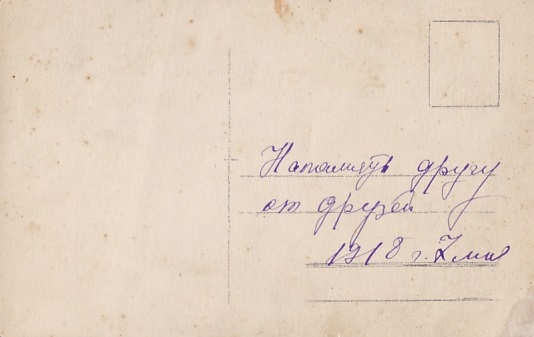 На память другу
от друзей
1918 г. 7 мая